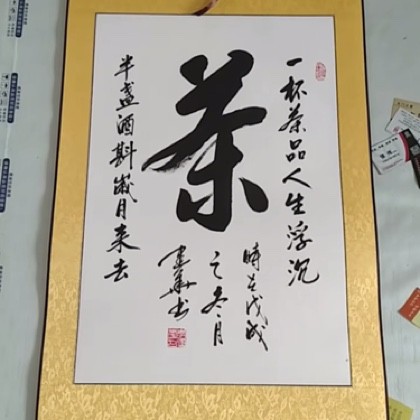 一杯茶品人生浮沉
茶
半盏酒斟岁月来去
時在戊戌
之冬月
建華书